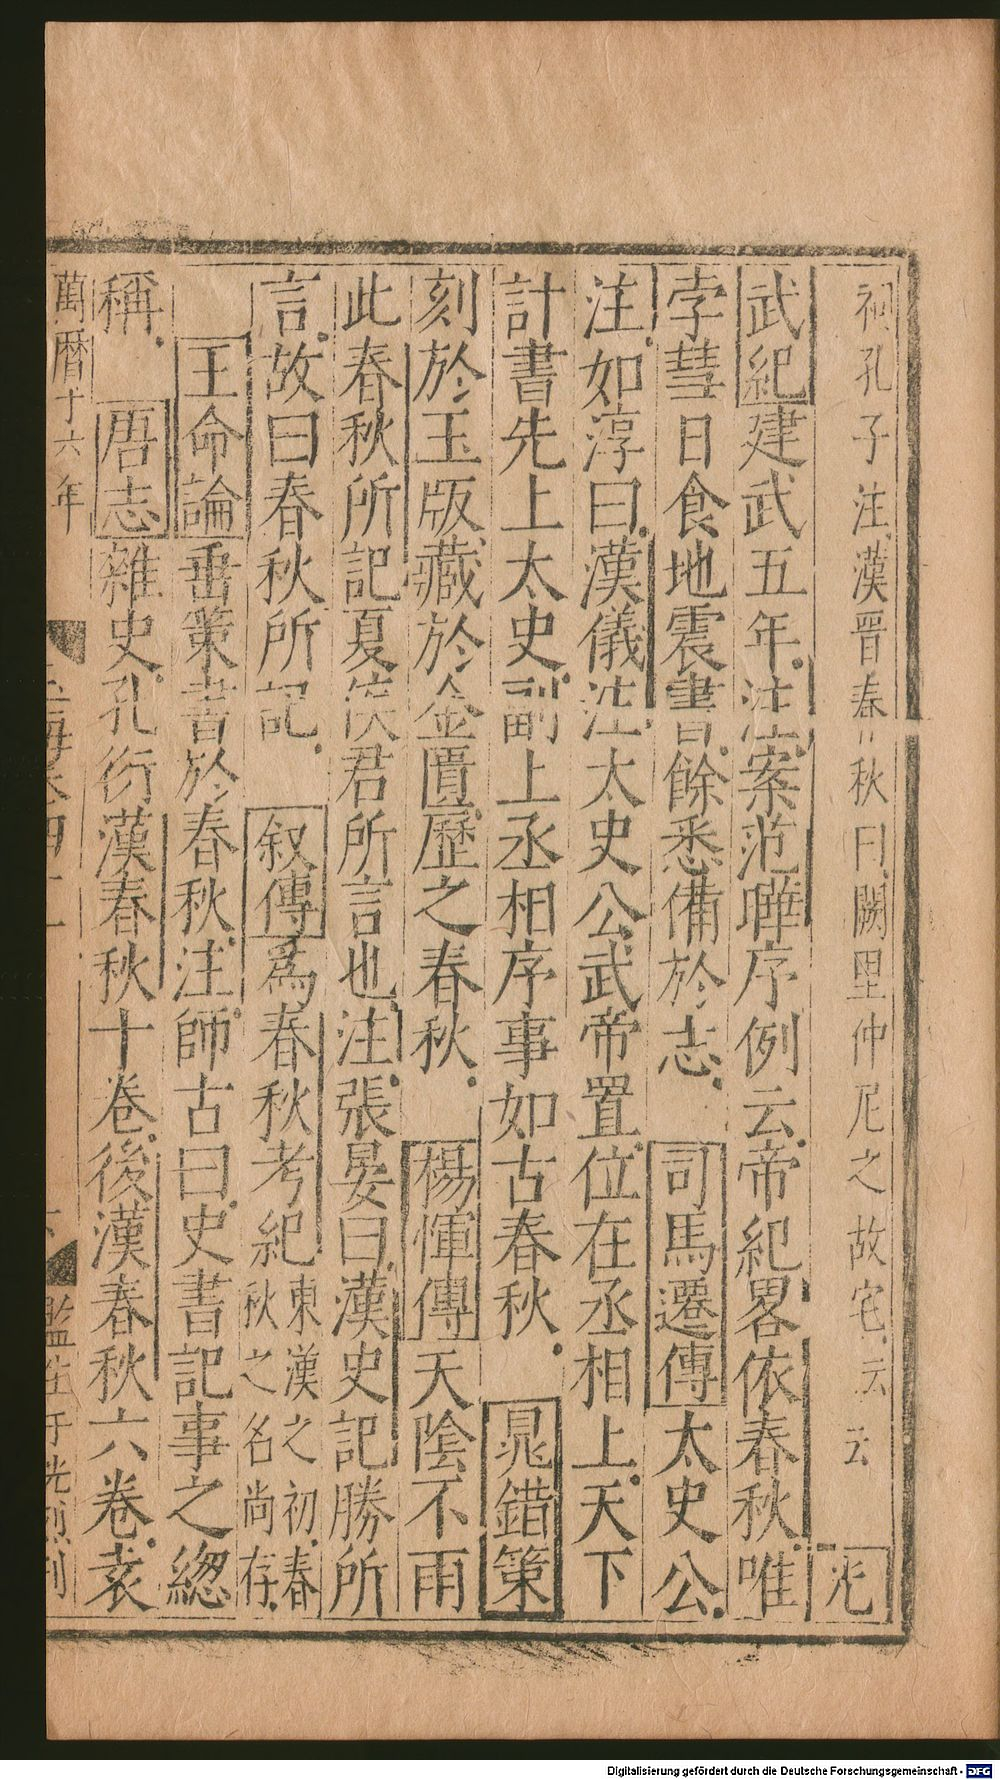 祠孔子注漢晉春秋曰闕里仲尼之故宅云云 光
武紀建武五年注案范曄序例云帝紀畧依春秋唯
孛彗日食地震書餘悉備於志 司馬遷傳太史公
注如淳曰漢儀注太史公武帝置位在丞相上天下
計書先上太史副上丞相序事如古春秋 鼂錯策
刻於玉版藏於金匱歷之春秋 楊惲傳天陰不雨
此春秋所記夏侯君所言也注張晏曰漢史記勝所
言故曰春秋所記 叙傳為春秋考紀東漢之初春秋之名尚存
王命論畨策書於春秋注師古曰史書記事之緫
稱 唐志雜史孔衍漢春秋十卷後漢春秋六卷袁
萬曆十六年 玉海卷四十 監生于光烈刊
Digitalisierung gefördert durch die Deutsche Forschungsgemeinschaft - DFG